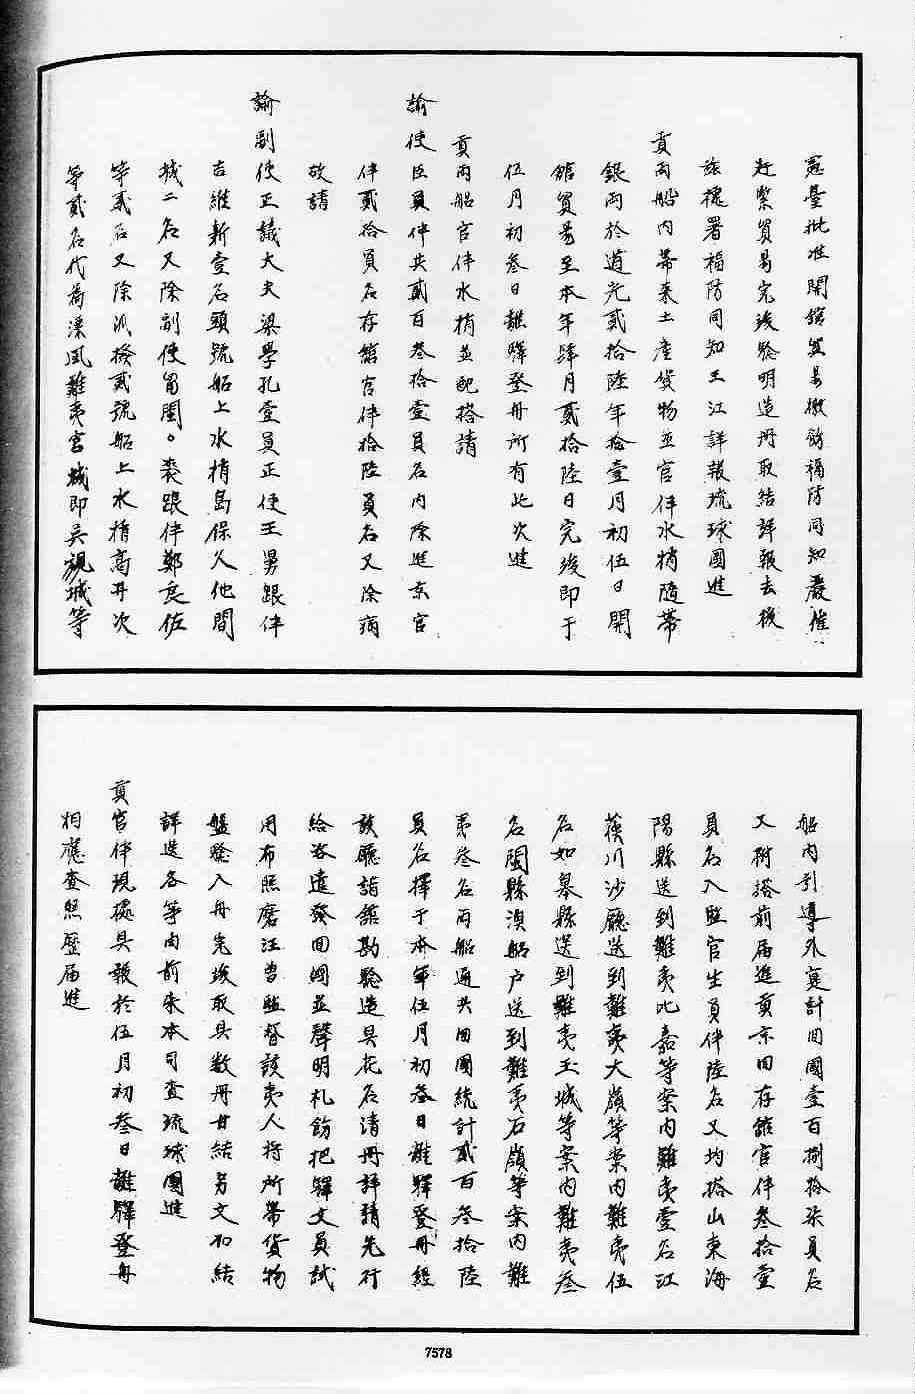 憲臺批准開舘貿易檄飭福防同知嚴催
赶緊貿易完竣驗明造冊取結詳報去後
旋據署福防同知王江詳報琉球國進
貢兩船內帶來土產貨物並官伴水梢隨帶
銀兩於道光貳拾陸年拾壹月初伍日開
舘貿易至本年肆月貳拾陸日完竣即于
伍月初叁日離驛登舟所有此次進
貢兩船官伴水梢並配搭請
諭使臣員伴共貳百叁拾壹員名內除進京官
伴貳拾員名存舘官伴拾陸員名又除病
故請
諭副使正議大夫梁學孔壹員正使王舅跟伴
吉維新壹名頭號船上水梢島保久他間
城二名又除副使留閩。喪跟伴鄭良佐
等貳名又除派撥貳號船上水梢高再次
等貳名代為漂風難夷宮城即吳親城等
船內引導外寔計回國壹百捌拾柒員名
又附搭前屆進貢京回存舘官伴叁拾壹
員名入監官生員伴陸名又均搭山東海
陽縣送到難夷比嘉等案內難夷壹名江
蘓川沙廳送到難夷大嶺等案內難夷伍
名如皋縣送到難夷玉城等案內難夷叁
名閩縣漁船户送到難夷石嶺等案內難
夷叁名兩船通共回國統計貳百叁拾陸
員名擇于本年伍月初叁日離驛登舟經
該廳詣舘勘驗造具花名清冊詳請先行
給咨遣發回國並聲明札飭把驛文員試
用布照磨汪曾監督該夷人將所帶貨物
盤驗入舟完竣取具数冊甘結另文加結
詳送各等由前來本司查琉球國進
貢官伴現據具報於伍月初叁日離驛登舟
相應查照歷屆進
7578